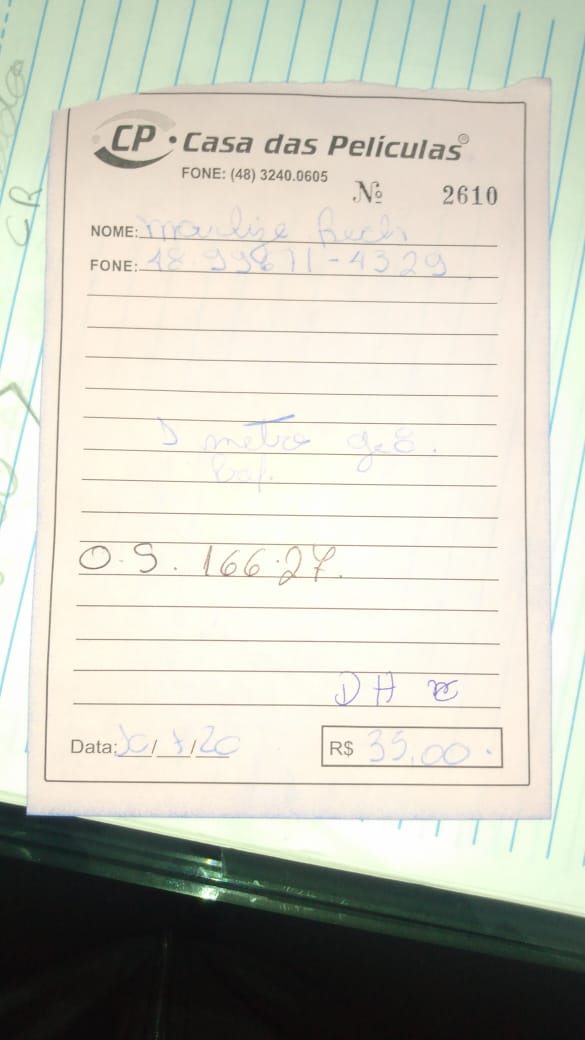 CP • Casa das Películas®
FONE: (48) 3240.0605
Nº 2610
NOME: Marlize
FONE: 48 99871-4329
metro
O.S. 166.27.
DH
Data: / /20
R$ 35,00.
CR